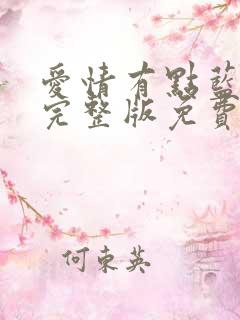 愛情有點藍
完整版免費
何東英